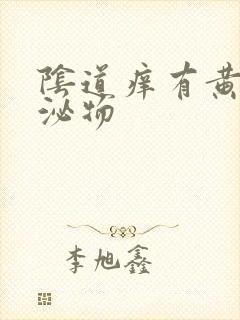 陰道痒有黄
泌物
李旭鑫